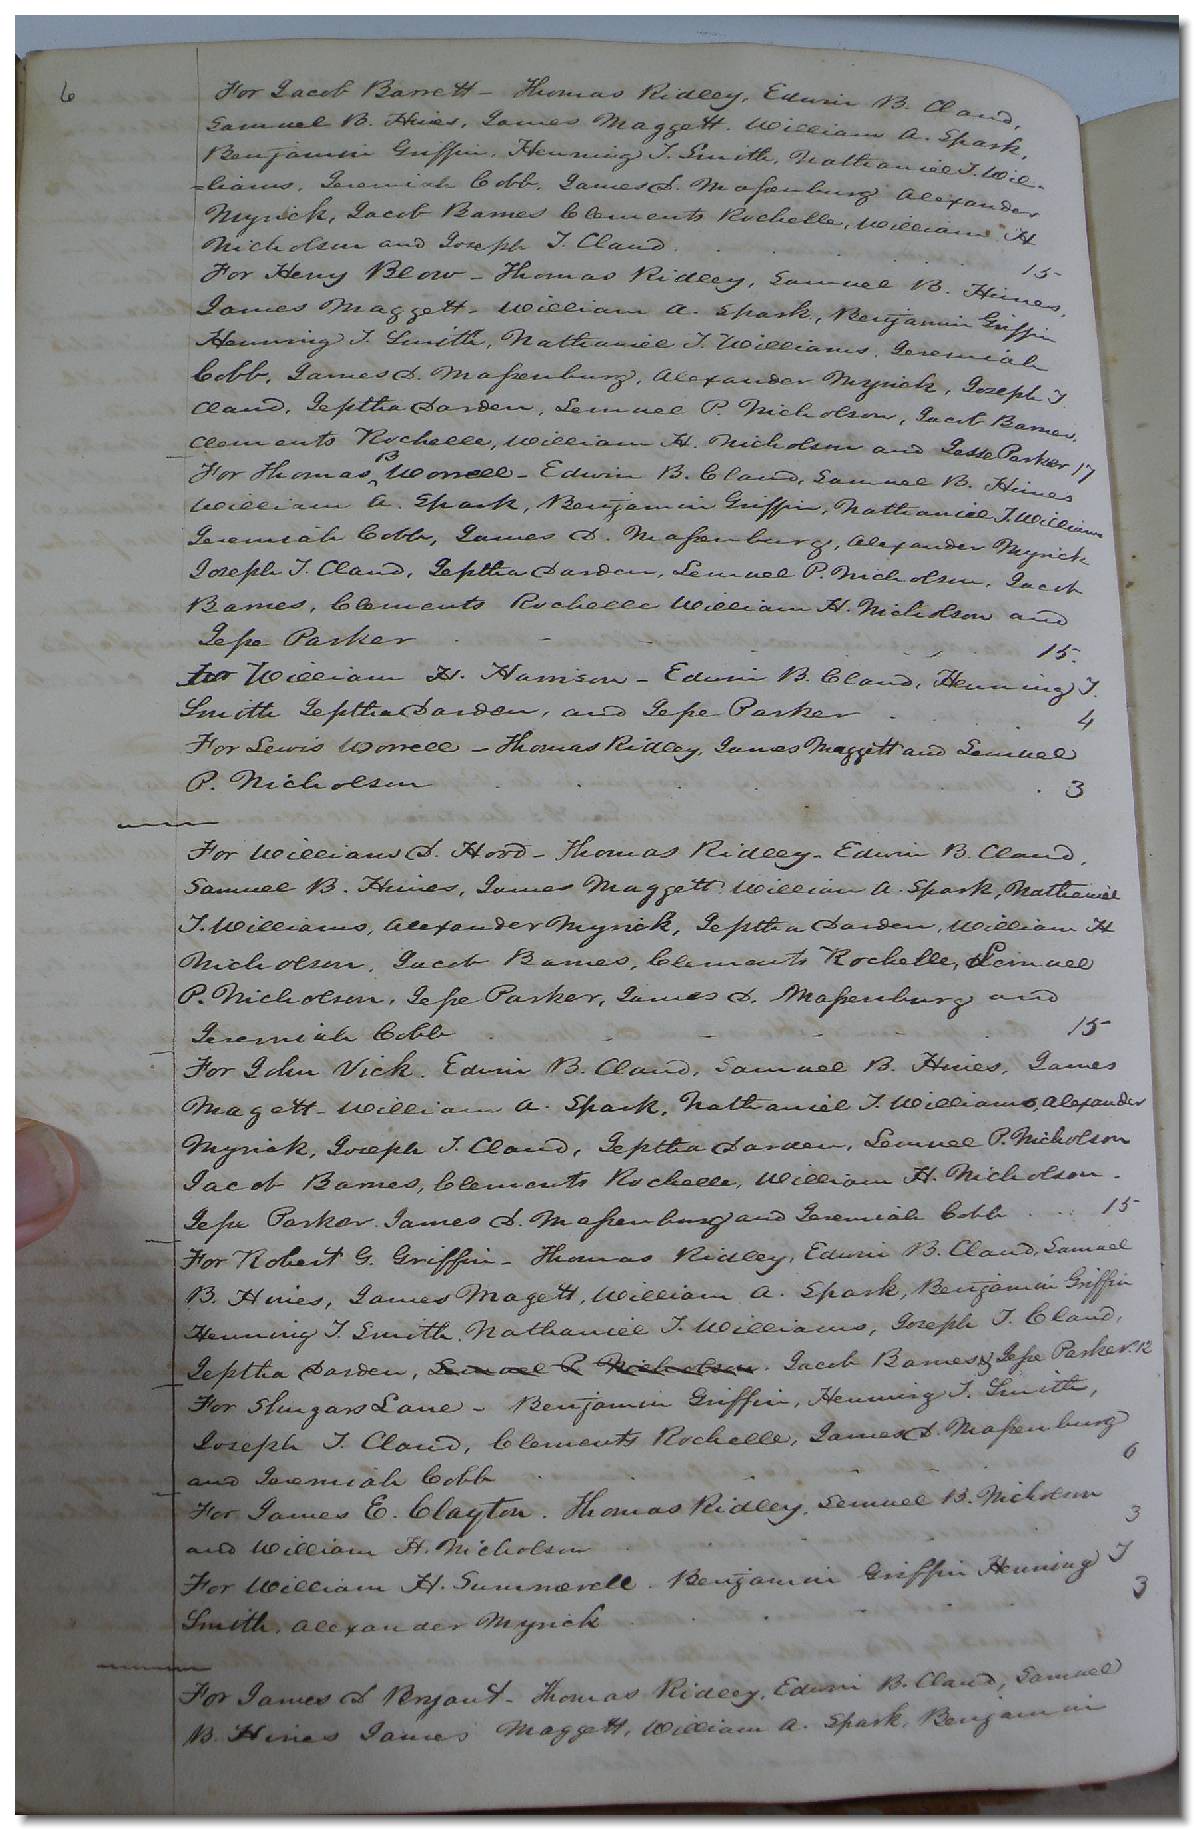 6
For Jacob Barrett - Thomas Ridley, Edwin B. Claud,
Samuel B. Hines, James Maggett. William A. Spark,
Benjamin Griffin, Henning T. Smith, Nathaniel T. Wil-
=liams, Jeremiah Cobb, James D. Maßenburg Alexander
Myrick, Jacob Barnes Clements Rochelle, William H
Nicholson and Joseph T. Claud . . . 15
For Henry Blow - Thomas Ridley, Samuel B. Hines,
James Maggett - William A. Spark, Benjamin Griffin
Henning T. Smith, Nathaniel T. Williams, Jeremiah
Cobb, James D. Maßenburg, Alexander Myrick, Joseph T.
Claud, Jeptha Darden, Lemuel P. Nicholson, Jacob Barnes,
Clements Rochelle, William H. Nicholson and Jesse Parker 17
For Thomas B Worrell - Edwin B. Claud, Samuel B. Hines
William A. Spark, Benjamin Griffin, Nathaniel T. Williams
Jeremiah Cobb, James D. Maßenburg, Alexander Myrick
Joseph T. Claud, Jeptha Darden, Lemuel P. Nicholson, Jacob
Barnes, Clements Rochelle William H. Nicholson and
Jeße Parker . - . . . 15.
For William H. Harrison - Edwin B. Claud, Henning T.
Smith Jeptha Darden, and Jeße Parker . . . 4
For Lewis Worrell - Thomas Ridley, James Maggett and Lemuel
P. Nicholson . . . . 3
For William D. Hood - Thomas Ridley - Edwin B. Claud,
Samuel B. Hines, James Maggett William A. Spark, Nathaniel
T. Williams, Alexander Myrick, Jeptha Darden, William H
Nicholson, Jacob Barnes, Clements Rochelle, Lemuel
P. Nicholson, Jeße Parker, James D. Maßenburg and
Jeremiah Cobb . . - - 15
For John Vick. Edwin B. Claud, Samuel B. Hines, James
Magett - William A. Spark, Nathaniel T. Williams, Alexander
Myrick, Joseph T. Claud, Jeptha Darden, Lemuel P. Nicholson
Jacob Barnes, Clements Rochelle, William H. Nicholson -
Jeße Parker. James D. Maßenburg and Jeremiah Cobb . . . 15
For Robert G. Griffin - Thomas Ridley, Edwin B. Claud, Samuel
B. Hines, James Magett, William A. Spark, Benjamin Griffin
Henning T. Smith, Nathaniel T. Williams, Joseph T. Claud,
Jeptha Darden, Lemuel P. Nicholson. Jacob Barnes & Jeße Parker. 12
For Slugars Lane - Benjamin Griffin, Henning T. Smith,
Joseph T. Claud, Clements Rochelle, James D. Maßenburg
and Jeremiah Cobb . . . 6
For James E. Clayton. Thomas Ridley, Lemuel B. Nicholson
and William H. Nicholson . . . 3
For William H. Summerell - Benjamin Griffin Henning T
Smith, Alexander Myrick . . . 3
For James D Bryant - Thomas Ridley, Edwin B. Claud, Samuel
B. Hines James Maggett, William A. Spark, Benjamin